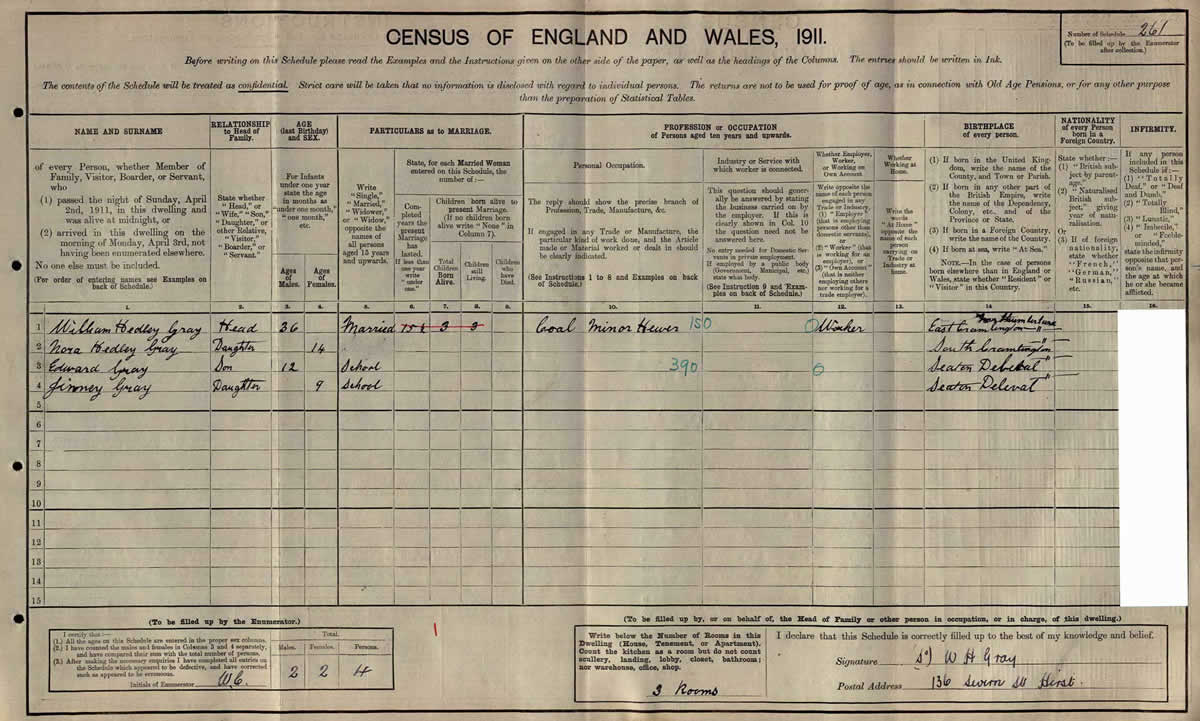 CENSUS OF ENGLAND AND WALES, 1911.
Number of Schedule 261
(To be filled up by the Enumerator
after collection.)
Before writing on this Schedule please read the Examples and the Instructions given on the other side of the paper, as well as the headings of the Columns. The entries should be written in Ink.
The contents of the Schedule will be treated as confidential. Strict care will be taken that no information is disclosed with regard to individual persons. The returns are not to be used for proof of age, as in connection with Old Age Pensions, or for any other purpose
than the preparation of Statistical Tables.
NAME AND SURNAME
of every Person, whether Member of
Family, Visitor, Boarder, or Servant,
who
(1) passed the night of Sunday, April
2nd, 1911, in this dwelling and
was alive at midnight, or
(2) arrived in this dwelling on the
morning of Monday, April 3rd, not
having been enumerated elsewhere.
No one else must be included.
(For order of entering names see Examples on
back of Schedule.)
RELATIONSHIP
to Head of
Family.
State whether
"Head," or
"Wife," "Son,"
"Daughter," or
other Relative,
"Visitor,"
"Boarder," or
"Servant."
AGE
(last Birthday)
and SEX.
For Infants
under one year
state the age
in months as
"under one month,"
"one month,"
etc.
Ages
of
Males.
Ages
of
Females.
PARTICULARS as to MARRIAGE.
Write
"Single,"
"Married,"
"Widower,"
or "Widow,"
opposite the
names of
all persons
aged 15 years
and upwards.
State, for each Married Woman
entered on this Schedule, the
number of :—
Completed
years the
present
Marriage
has
lasted.
If less than
one year
write
"under
one."
Children born alive to
present Marriage.
(If no children born
alive write "None" in
Column 7).
Total
Children
Born
Alive.
Children
still
Living.
Children
who
have
Died.
PROFESSION or OCCUPATION
of Persons aged ten years and upwards.
Personal Occupation.
The reply should show the precise branch of
Profession, Trade, Manufacture, &c.
If engaged in any Trade or Manufacture, the
particular kind of work done, and the Article
made or Material worked or dealt in should
be clearly indicated.
(See Instructions 1 to 8 and Examples on back
of Schedule.)
Industry or Service with
which worker is connected.
This question should generally
be answered by stating
the business carried on by
the employer. If this is
clearly shown in Col. 10
the question need not be
answered here.
No entry needed for Domestic Servants
in private employment.
If employed by a public body
(Government, Municipal, etc.)
state what body.
(See Instruction 9 and Examples
on back of Schedule.)
Whether Employer,
Worker,
or Working on
Own Account.
Write opposite the
name of each person
engaged in any
Trade or Industry,
(1) "Employer"
(that is employing
persons other than
domestic servants),
or
(2) "Worker" (that
is working for an
employer), or
(3) "Own Account"
(that is neither
employing others
nor working for a
trade employer).
Whether
Working at
Home.
Write the
words
"At Home"
opposite the
name of each
person
carrying on
Trade or
Industry at
home.
BIRTHPLACE
of every person.
(1) If born in the United Kingdom,
write the name of the
County, and Town or Parish.
(2) If born in any other part of
the British Empire, write
the name of the Dependency,
Colony, etc., and of the
Province or State.
(3) If born in a Foreign Country,
write the name of the Country.
(4) If born at sea, write "At Sea."
NOTE.—In the case of persons
born elsewhere than in England or
Wales, state whether "Resident" or
"Visitor" in this Country.
NATIONALITY
of every Person
born in a
Foreign Country.
State whether :—
(1) "British
subject by parentage,"
(2) "Naturalised
British
subject,"
giving
year of naturalisation.
Or
(3) If of foreign
nationality,
state whether
"French,"
"German,"
"Russian,"
etc.
INFIRMITY.
If any person
included in this
Schedule is :—
(1) "Totally
Deaf," or "Deaf
and Dumb,"
(2) "Totally
Blind,"
(3) "Lunatic,"
(4) "Imbecile,"
or "Feeble-minded,"
state the infirmity
opposite that person's
name, and
the age at which
he or she became
afflicted.
1. 2. 3. 4. 5. 6. 7. 8. 9. 10. 11. 12. 13. 14. 15. 16.
1 William Hedley Gray Head 36 Married 3 3 Coal Minor Hewer 150 Worker East Cramlington Northumberland
2 Nora Hedley Gray Daughter 14 South Cramlington "
3 Edward Gray Son 12 School 390 Seaton Deleval "
4 Jinney Gray Daughter 9 School Seaton Deleval "
5
6
7
8
9
10
11
12
13
14
15
(To be filled up by the Enumerator.)
I certify that :—
(1.) All the ages on this Schedule are entered in the proper sex columns.
(2.) I have counted the males and females in Columns 3 and 4 separately,
and have compared their sum with the total number of persons.
(3.) After making the necessary enquiries I have completed all entries on
the Schedule which appeared to be defective, and have corrected
such as appeared to be erroneous.
Initials of Enumerator W.C.
Total.
Males. Females. Persons.
2 2 4
(To be filled up by, or on behalf of, the Head of Family or other person in occupation, or in charge, of this dwelling.)
Write below the Number of Rooms in this
Dwelling (House, Tenement, or Apartment).
Count the kitchen as a room but do not count
scullery, landing, lobby, closet, bathroom;
nor warehouse, office, shop.
3 Rooms
I declare that this Schedule is correctly filled up to the best of my knowledge and belief.
Signature W H Gray
Postal Address 136 Severn St Hirst